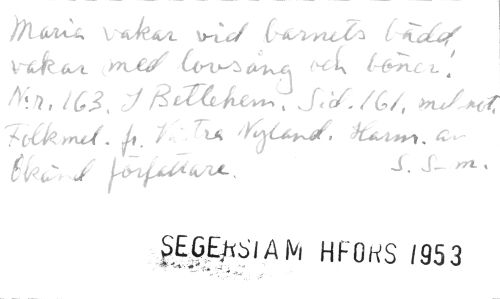 Maria vakar vid barnets bädd,
vakar med lovsång och böner.
N:r. 163. I Betlehem. Sid. 161. mel. not.
Folkmel. fr. Västra Nyland. Harm. av
Okänd författare. S. S-m.
SEGERSTAM HFORS 1953